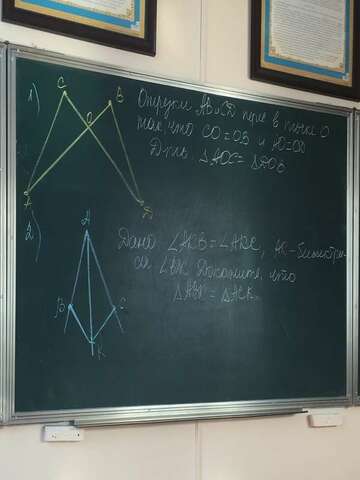 1)
C
B
O
A
D
Отрезки AB и CD перес в точке O
так, что CO=OB и AO=OD
Д-ть ΔAOC=ΔDOB
2)
A
B
C
K
Дано
AK-биссектри-
са Докажите, что
ΔABK=ΔACK.